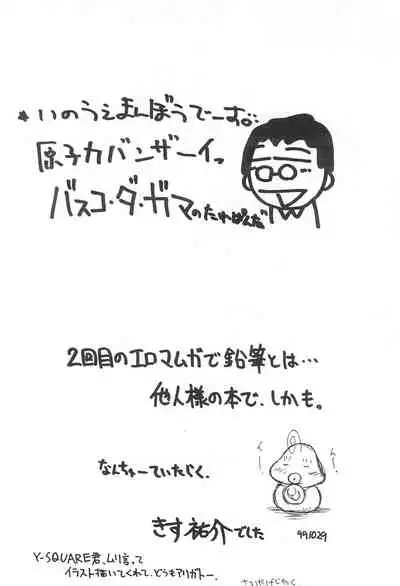 *いのうえまんぼうでーす。
原子力バンザーイっ
バスコ・ダ・ガマのたれぱんだ
2回目のエロマムガで鉛筆とは…
他人様の本で、しかも。
なんちゅーていたらく。
きす祐介でした
991029
Y-SQUARE君、ムリ言って
イラスト描いてくれて、どうもアリガトー。